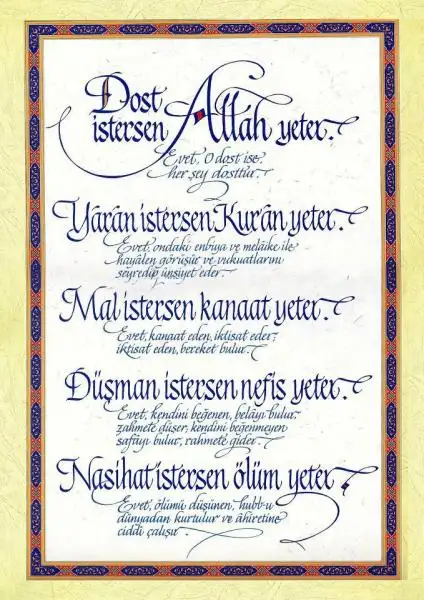 Dost
istersen Allah yeter.
Evet, O dost ise,
her şey dosttur.
Yârân istersen, Kur'an yeter.
Evet, ondaki enbiya ve melâike ile
hayâlen görüşür ve vukuatlarını
seyredip ünsiyet eder.
Mal istersen kanaat yeter.
Evet, kanaat eden, iktisat eder;
iktisat eden, bereket bulur.
Düşman istersen nefis yeter.
Evet, kendini beğenen, belâyı bulur,
zahmete düşer; kendini beğenmeyen
safâyı bulur, rahmete gider.
Nasihat istersen ölüm yeter.
Evet, ölümü düşünen, hubb-u
dünyadan kurtulur ve âhiretine
ciddî çalışır.